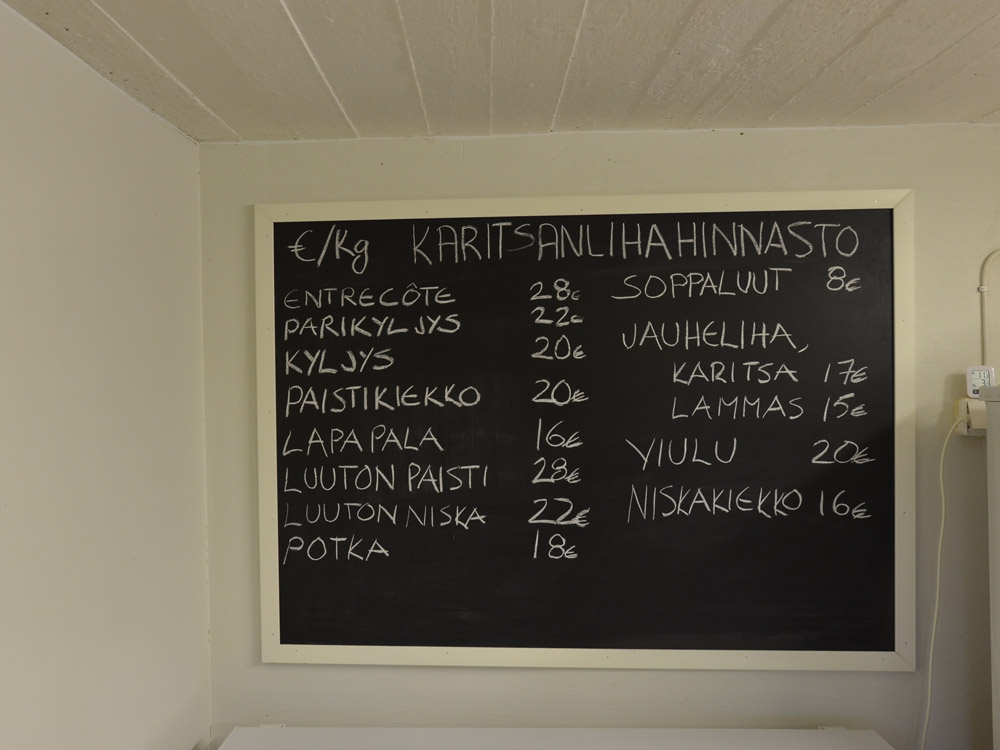 €/Kg KARITSANLIHAHINNASTO
ENTRECÔTE 28€
PARIKYLJYS 22€
KYLJYS 20€
PAISTIKIEKKO 20€
LAPAPALA 16€
LUUTON PAISTI 28€
LUUTON NISKA 22€
POTKA 18€
SOPPALUUT 8€
JAUHELIHA,
KARITSA 17€
LAMMAS 15€
VIULU 20€
NISKAKIEKKO 16€